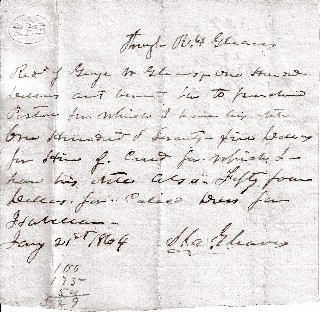 Through R. H. Gleaves
Recd of George W Gleaves One Hundred
Dollars amt to purchase
for Which I have his note
One Hundred & Seventy five Dollars
for Hire of for Which I
have his note also Fifty four
Dollars for Calico Dress for
Isabella
Jany 21st 1864 Gleaves
100
175
54
329